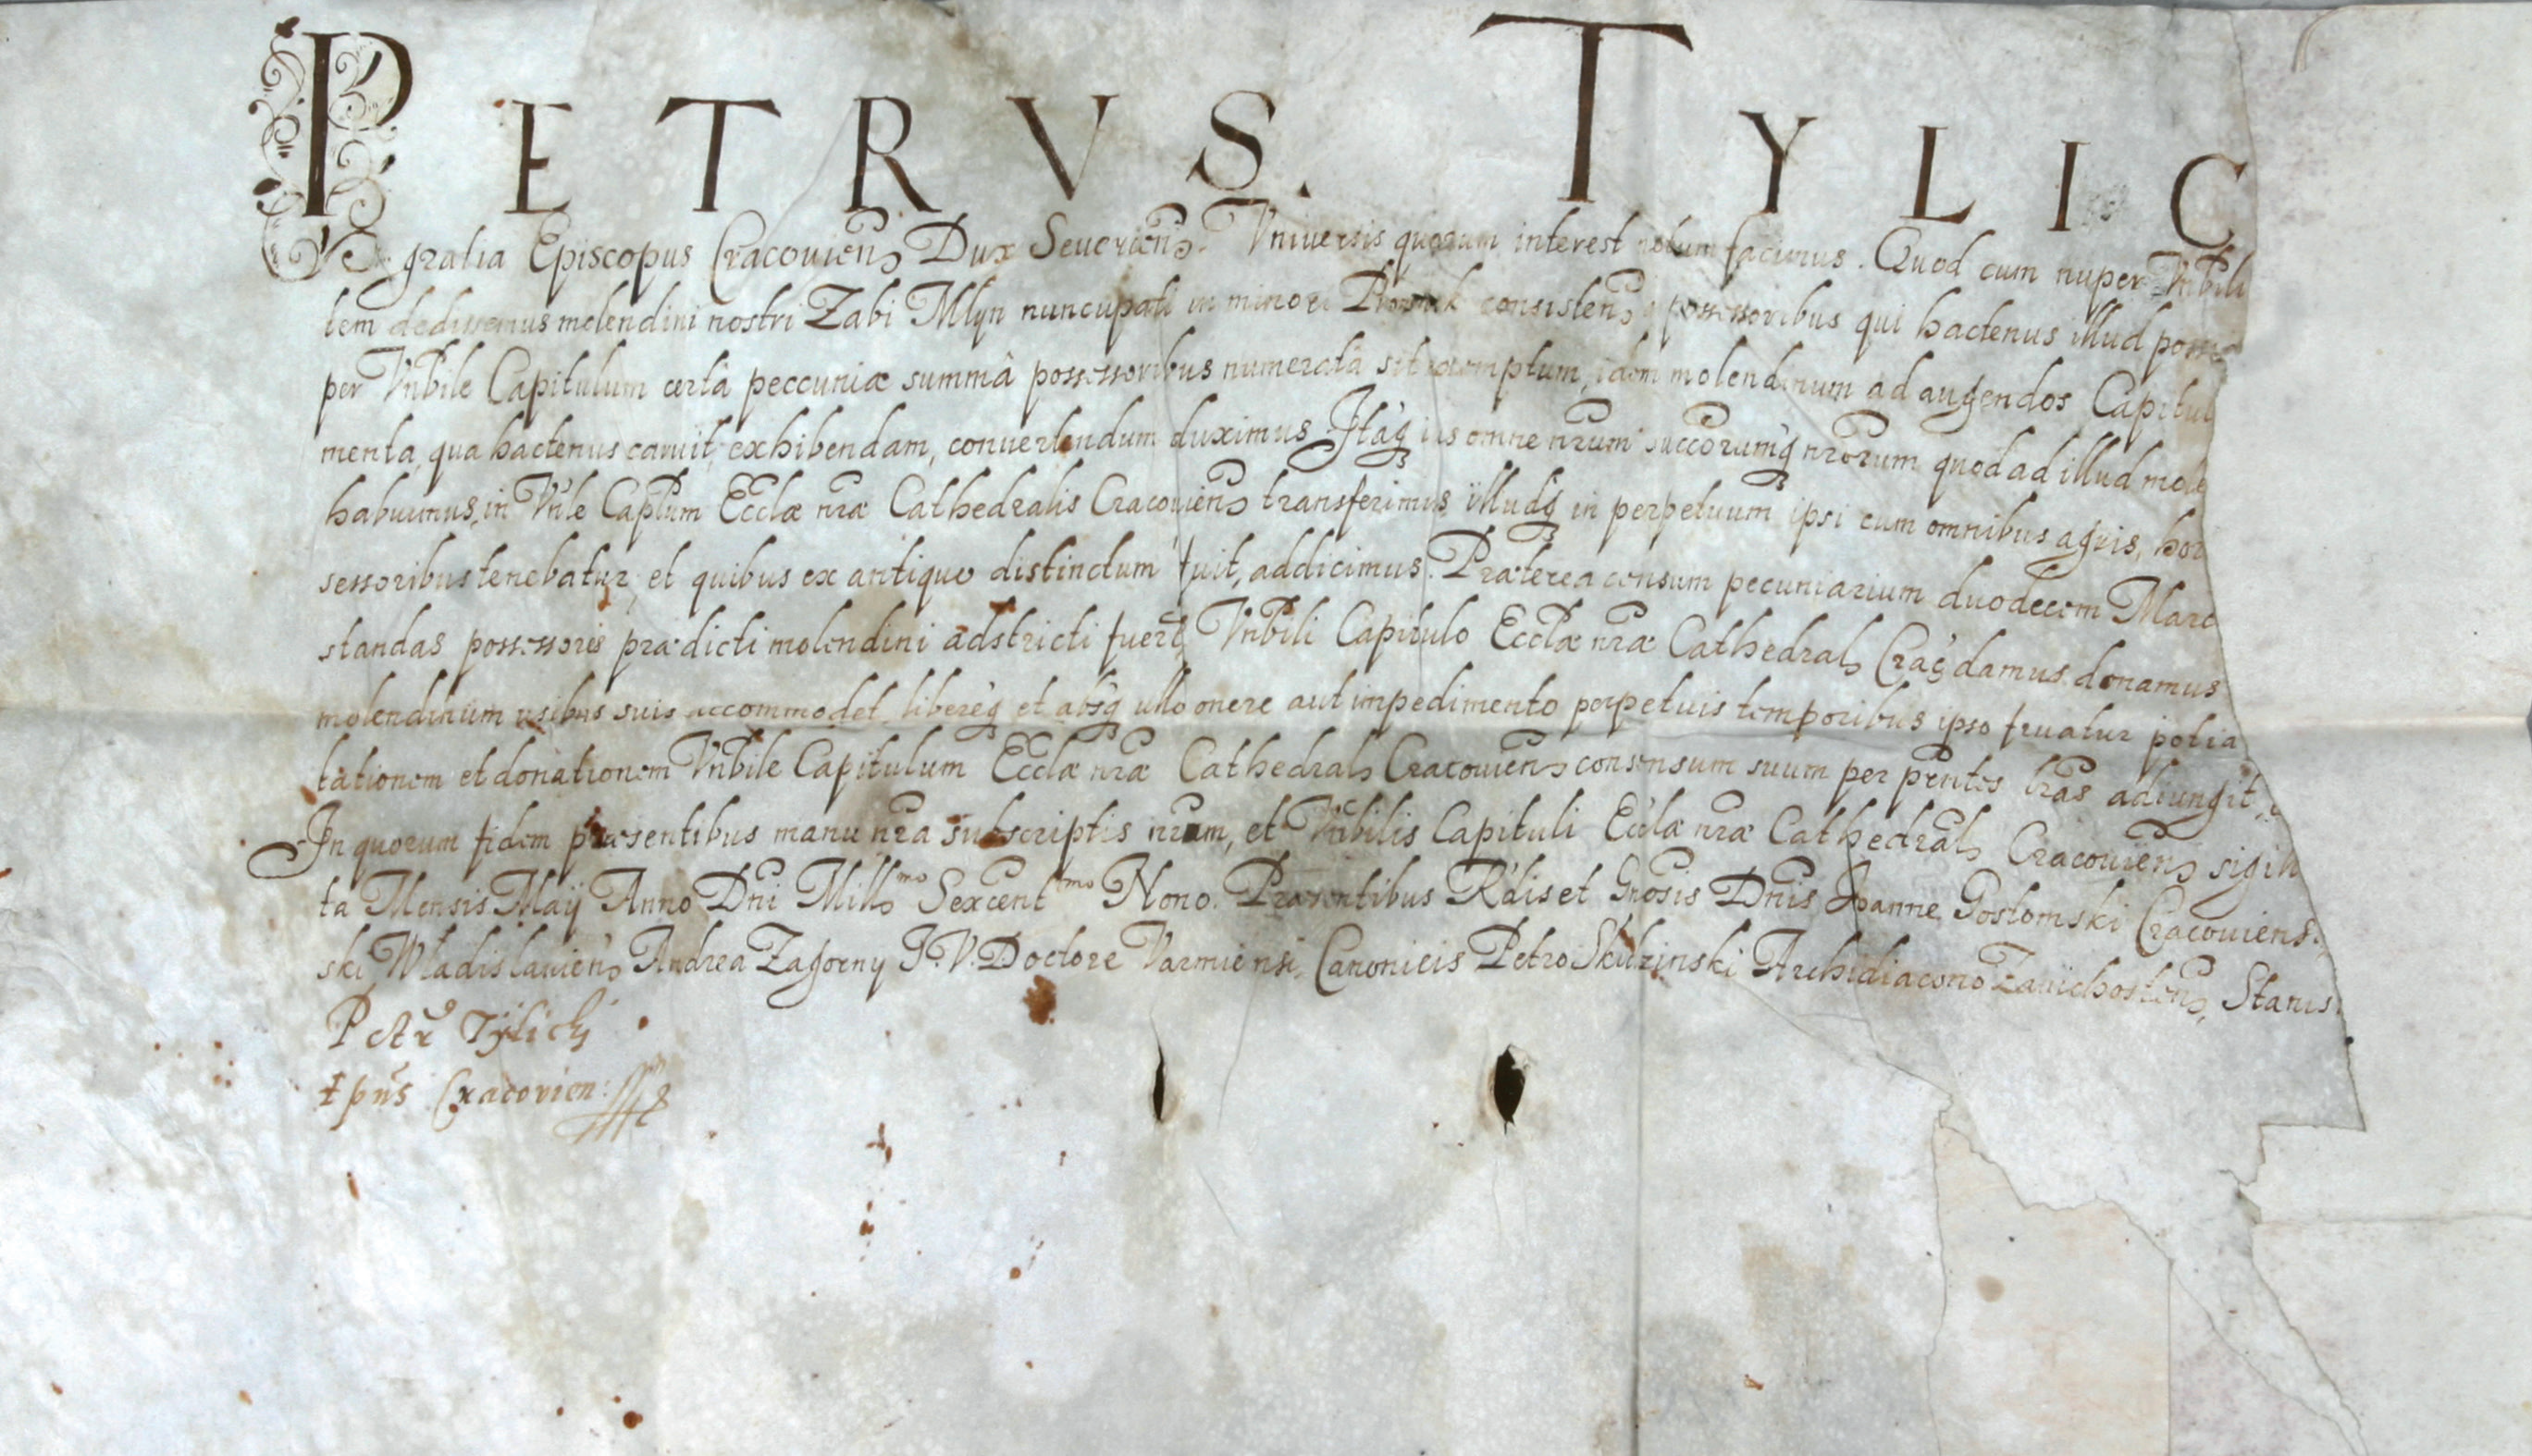 PETRVS. TYLIC
gratia Episcopus Cracouien̄ Dux Seuerien̄. Vniuersis quorum interest notum facimus. Quod cum nuper Vn̄bili
tem dedissemus molendini nostri Zabi Mlyn nuncupati in minori consisten̄ possessoribus qui hactenus illud
per Vn̄bile Capitulum certâ peccuniæ summâ possessoribus numeratâ sit exemptum, idem molendinum ad augendos Capitul
menta, qua hactenus caruit, exhibendam, conuertendum duximus. Itaq̀ ius omne nr̄um succorumq̀ nr̄orum quod ad illud mole
habuimus, in Vn̄le Caplūm Eccl̄æ nr̄æ Cathedralis Cracouien̄ transferimus, illudq̀ in perpetuum ipsi cum omnibus agris, hor
sessoribus tenebatur, et quibus ex antiquo distinctum fuit, addicimus. Præterea censum pecuniarium duodecem Marc
standas possessores prædicti molendini adstricti fuer̄t, Vn̄bili Capitulo Eccl̄æ nr̄æ Cathedral̄ Crac̄ damus donamus
molendinum usibus suis accommodet, libereq̀ et absq̀ ullo onere aut impedimento perpetuis temporibus ipso fruatur potia
tationem et donationem Vn̄bile Capitulum Eccl̄æ nr̄æ Cathedral̄ Cracouien̄ consensum suum per pn̄tes lr̄as adiungit,
In quorum fidem præsentibus manu nr̄a subscriptis nr̄um, et Vn̄bilis Capituli Eccl̄æ nr̄æ Cathedral̄ Cracouien̄ sigill
ta Mensis Maÿ Anno Dn̄i Mill̄mo Sexcent̄mo Nono. Præsentibus R̄dis et Gn̄osis Dn̄is Joanne Gostomski Cracouiens.
ski Wladislauien̄ Andrea Zagorny J.V. Doctore Varmiensi, Canonicis Petro Skidzinski Archidiacono Zauichosten̄, Stanis
Petr9 Tÿlickj
Epn̄s Cracovien: